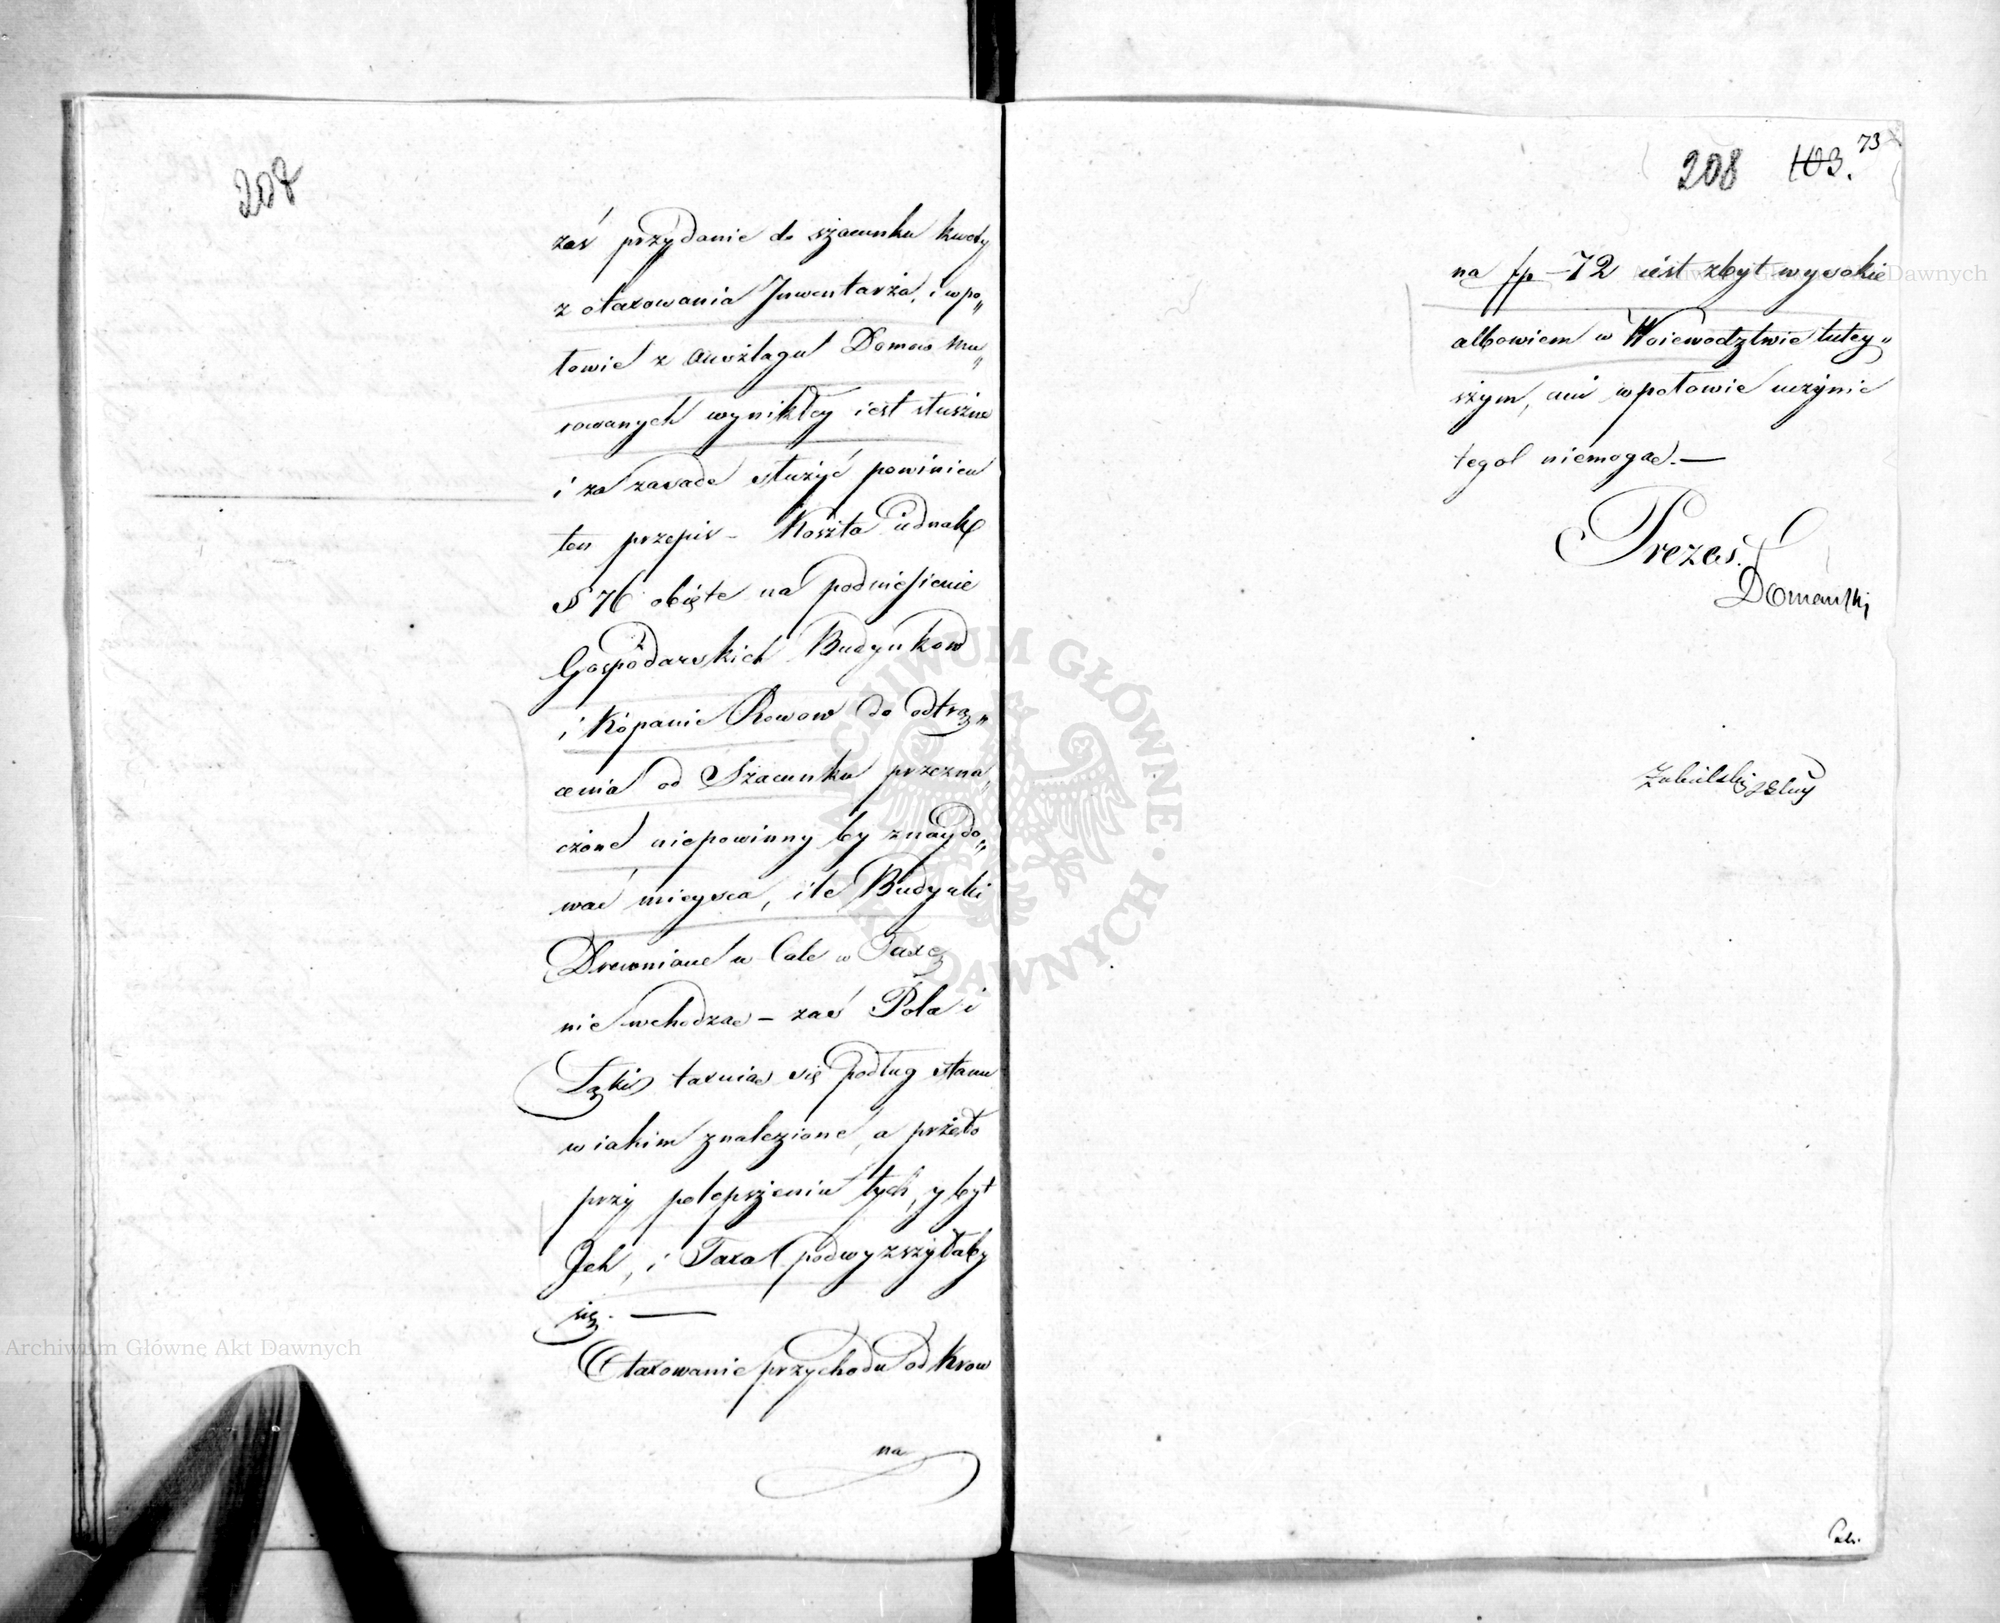 207
zaś przydanie do szacunku kwoty
z otaxowania Inwentarza, i w po„
łowie z Anszlagu Domow Mu„
rowanych wynikłey iest słuszne
i za zasade służyć powinien
ten przepis – Koszta iednak
§ 76 obięte na podniesienie
Gospodarskich Budynkow
i Kopanie Rowow do odtrą„
cenia od Szacunku przezna„
czone niepowinny by znaydo„
wać mieysca, ile Budynki
Drewniane w Cale w Taxę
nie wchodzą – zaś Pola i
Łąki taxuią się podług stanu
w iakim znalezione, a przeto
przy polepszeniu tych, y byt
Jch, i Taxa podwyzszyłaby
się. —
Otaxowanie przychodu od Krow
na
208 103. 73
na fp – 72 iest zbyt wysokie
albowiem w Woiewodztwie tutey„
szym, ani w połowie uczynić
tego niemogą. —
Prezes.
Domański
Archiwum Główne Akt Dawnych
Archiwum Główne Akt Dawnych
ARCHIWUM GŁÓWNE AKT DAWNYCH